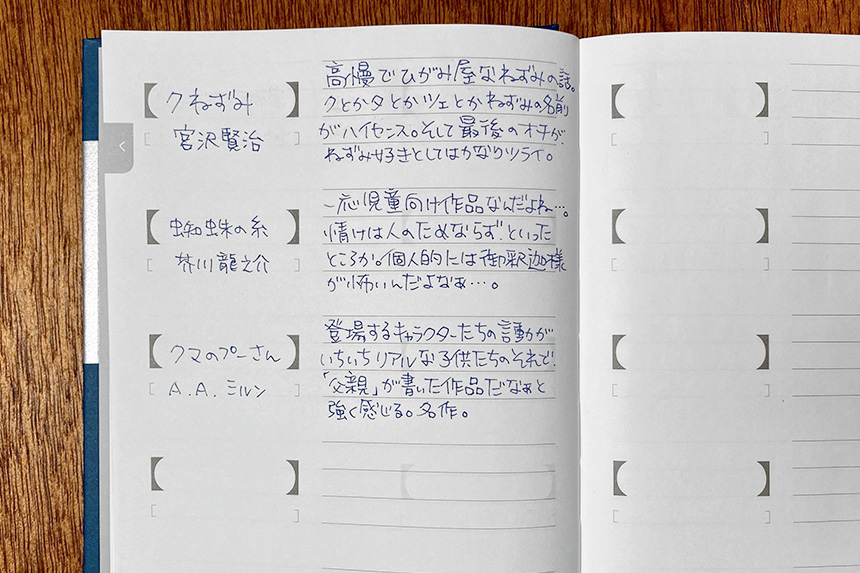 クねずみ
宮沢賢治
高慢でひがみ屋なねずみの話。
クとかタとかツェとかねずみの名前
がハイセンス。そして最後のオチが、
ねずみ好きとしてはかなりツライ。
蜘蛛の糸
芥川龍之介
一応児童向け作品なんだよね…。
情けは人のためならず、といった
ところか。個人的には御釈迦様
が怖いんだよなぁ…。
クマのプーさん
A.A.ミルン
登場するキャラクターたちの言動が
いちいちリアルな子供たちのそれで、
「父親」が書いた作品だなぁと
強く感じる。名作。